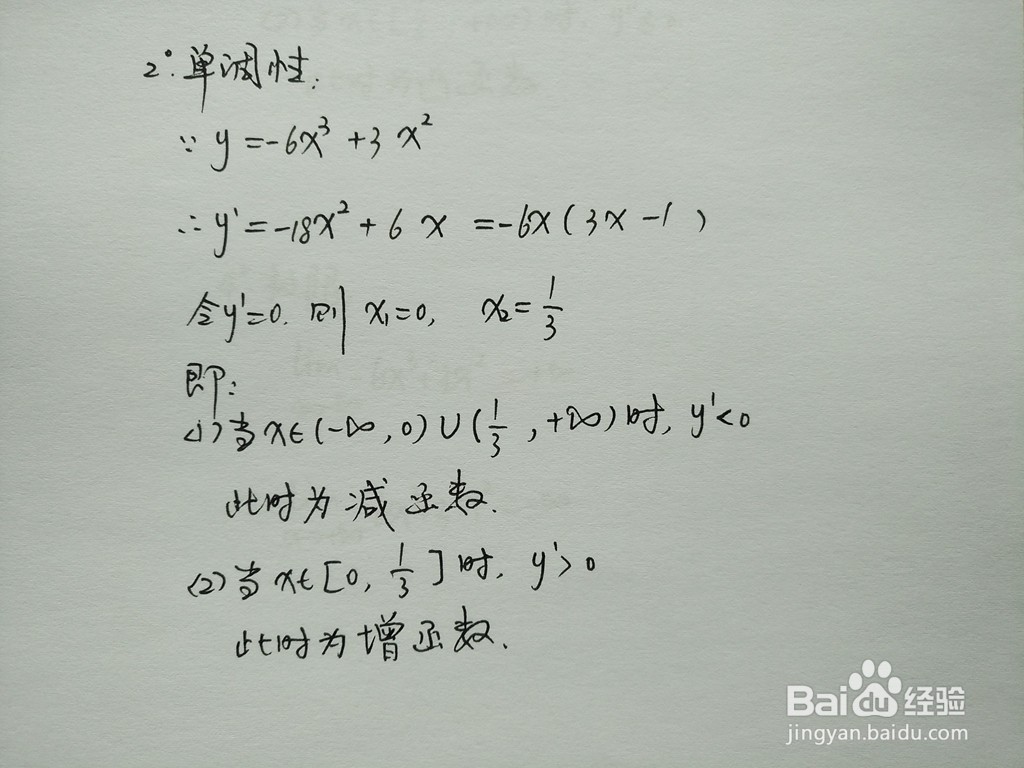 2°. 单调性.
∵ y = -6x³ + 3x²
∴ y' = -18x² + 6x = -6x(3x-1)
令y'=0. 则 x₁=0, x₂=1/3
即:
(1)当x∈(-∞,0)∪(1/3,+∞)时, y'<0
此时为减函数.
(2)当x∈[0,1/3]时, y'>0
此时为增函数.
Baidu经验
jingyan.baidu.com